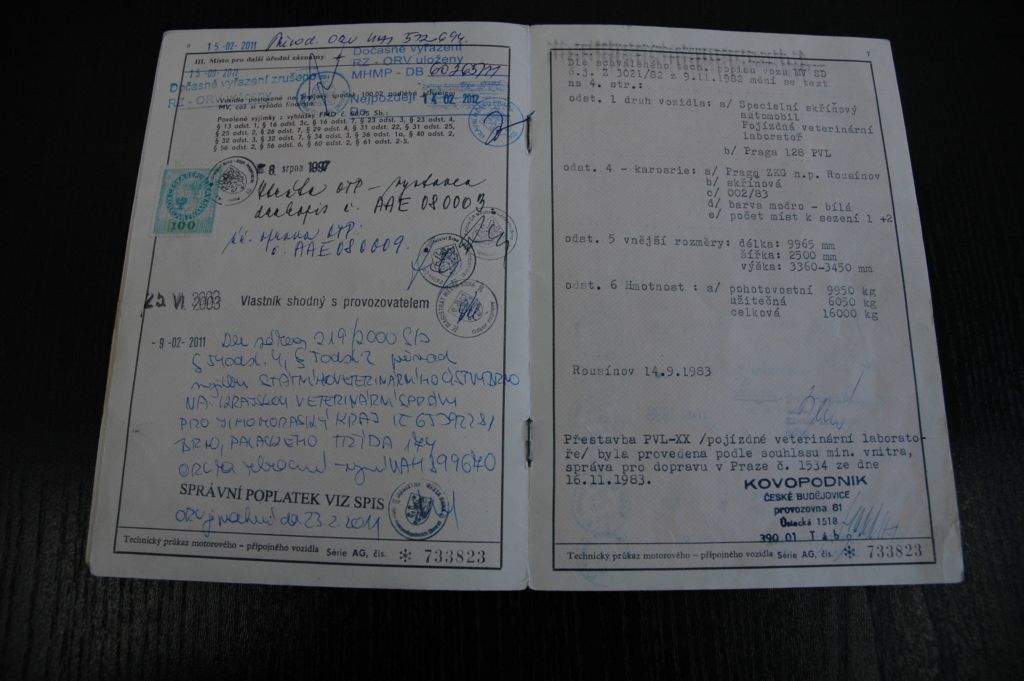 15-02-2011
Původ. ORV UAH 532694.
III. Místo pro další úřední záznamy
Dočasné vyřazení
RZ - ORV uloženy
MHMP - DB 60263/11
Nejpozději 14 02 2012
Do
15-02-2011
Dočasné vyřazení zrušeno
RZ - ORV
MV, což si výrobu
Povolené výjimky z vyhlášky FMD č. Sb.:
§ 13 odst. 1, § 16 odst. 3c, § 16 odst. 7, § 23 odst. 3, § 23 odst. 4,
§ 25 odst. 2, § 26 odst. 7, § 29 odst. 4, § 31 odst. 22, § 31 odst. 25,
§ 32 odst. 3, § 32 odst. 7, § 34 odst. 3, § 36 odst. 1a, § 40 odst. 2,
§ 56 odst. 2, § 56 odst. 6, § 60 odst. 2, § 61 odst. 2-5.
8. srpna 1997
100
OTP -
č. AAE 080003.
oprava OTP:
č. AAE 080009.
25. VI. 2003 Vlastník shodný s provozovatelem
-9-02-2011 Dle zákona 219/2000 Sb
§ 54 odst. 4, § odst. 2 převod
STÁTNÍHO VETERINÁRNÍHO ÚSTAVU BRNO
NA KRAJSKOU VETERINÁRNÍ SPRÁVU
PRO JIHOMORAVSKÝ KRAJ
BRNO, PALACKÉHO TŘÍDA 174
UAH 899670
SPRÁVNÍ POPLATEK VIZ SPIS
do 23.2.2011
Technický průkaz motorového - přípojného vozidla Série AG, čís. ✻ 733823
7
Dle schváleného tech. popisu vozu MV SD
č.j. Z 3021/82 z 9.11.1982 mění se text
na 4. str.:
odst. 1 druh vozidla: a/ Specielní skříňový
automobil
Pojízdná veterinární
laboratoř
b/ Praga 128 PVL
odst. 4 - karoserie: a/ Praga ZKG n.p. Rousínov
b/ skříňová
c/ 002/83
d/ barva modro - bílá
e/ počet míst k sezení 1 +2
odst. 5 vnější rozměry: délka: 9965 mm
šířka: 2500 mm
výška: 3360-3450 mm
odst. 6 Hmotnost : a/ pohotovostní 9950 kg
užitečná 6050 kg
celková 16000 kg
Rousínov 14.9.1983
Přestavba PVL-XX /pojízdné veterinární laborato-
ře/ byla provedena podle souhlasu min. vnitra,
správa pro dopravu v Praze č. 1534 ze dne
16.11.1983.
KOVOPODNIK
ČESKÉ BUDĚJOVICE
provozovna 61
Ústecká 1518
390 01 Tábor
Technický průkaz motorového - přípojného vozidla Série AG, čís. ✻ 733823